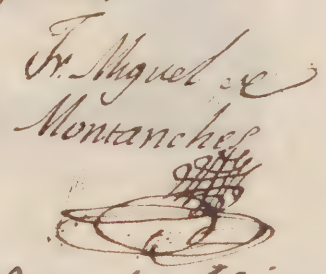 Fr. Miguel de
Montanches